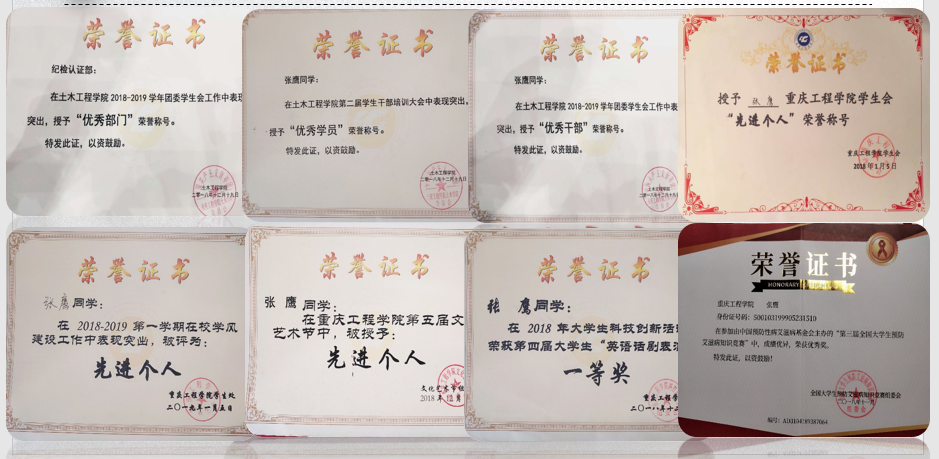 荣誉证书
纪检认证部：
在土木工程学院2018-2019学年团委学生会工作中表现
突出，授予“优秀部门”荣誉称号。
特发此证，以资鼓励。
土木工程学院
二零一八年十二月十九日
荣誉证书
张鹰同学：
在土木工程学院第二届学生干部培训大会中表现突出，
授予“优秀学员”荣誉称号。
特发此证，以资鼓励。
土木工程学院
二零一八年十二月十九日
荣誉证书
张鹰同学：
在土木工程学院2018-2019学年团委学生会工作中表
突出，授予“优秀干部”荣誉称号。
特发此证，以资鼓励。
土木工程学院
荣誉证书
授予 张鹰 重庆工程学院学生会
“先进个人”荣誉称号
重庆工程学院学生会
2018年1月5日
荣誉证书
张鹰同学：
在 2018-2019 第一学期在校学风
建设工作中表现突出，被评为：
先进个人
重庆工程学院学生处
二〇一九年一月五日
荣誉证书
张 鹰 同学：
在重庆工程学院第五届文
艺术节中，被授予：
先进个人
文化艺术节组
2018年12月
荣誉证书
张 鹰同学：
在 2018 年大学生科技创新活
荣获第四届大学生“英语话剧表演
一等奖
重庆工程学
二〇一八年十二
荣誉证书
HONORARY
重庆工程学院 张鹰
身份证号码：500103199905231510
在参加由中国预防性病艾滋病基金会主办的“第三届全国大学生预防
艾滋病知识竞赛”中，成绩优异，荣获优秀奖。
特发此证，以资鼓励！
全国大学生预防艾滋病知识竞赛组委会
二〇一八年十一月